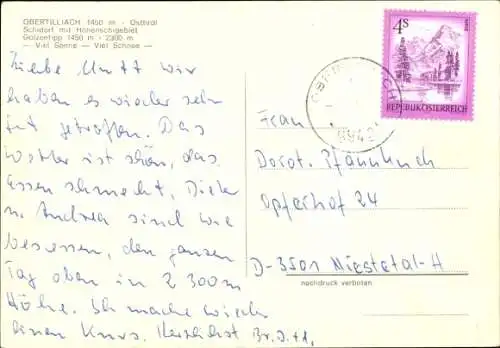 OBERTILLIACH 1450 m - Osttirol
Schidorf mit Höhenschigebiet
Golzentipp 1450 m - 2300 m
— Viel Sonne — Viel Schnee —
Liebe Mutti wir
haben es wieder sehr
gut getroffen. Das
Wetter ist schön, das
Essen schmeckt. Dieter
u. Andrea sind wie
besessen, den ganzen
Tag oben in 2 300 m
Höhe. Ich mache wieder
einen Kurs. Herzlichst
4S
REPUBLIK ÖSTERREICH
Frau
Dorot. Pfannkuch
Opferhof 24
D-3501 Niestetal-H
nachdruck verboten